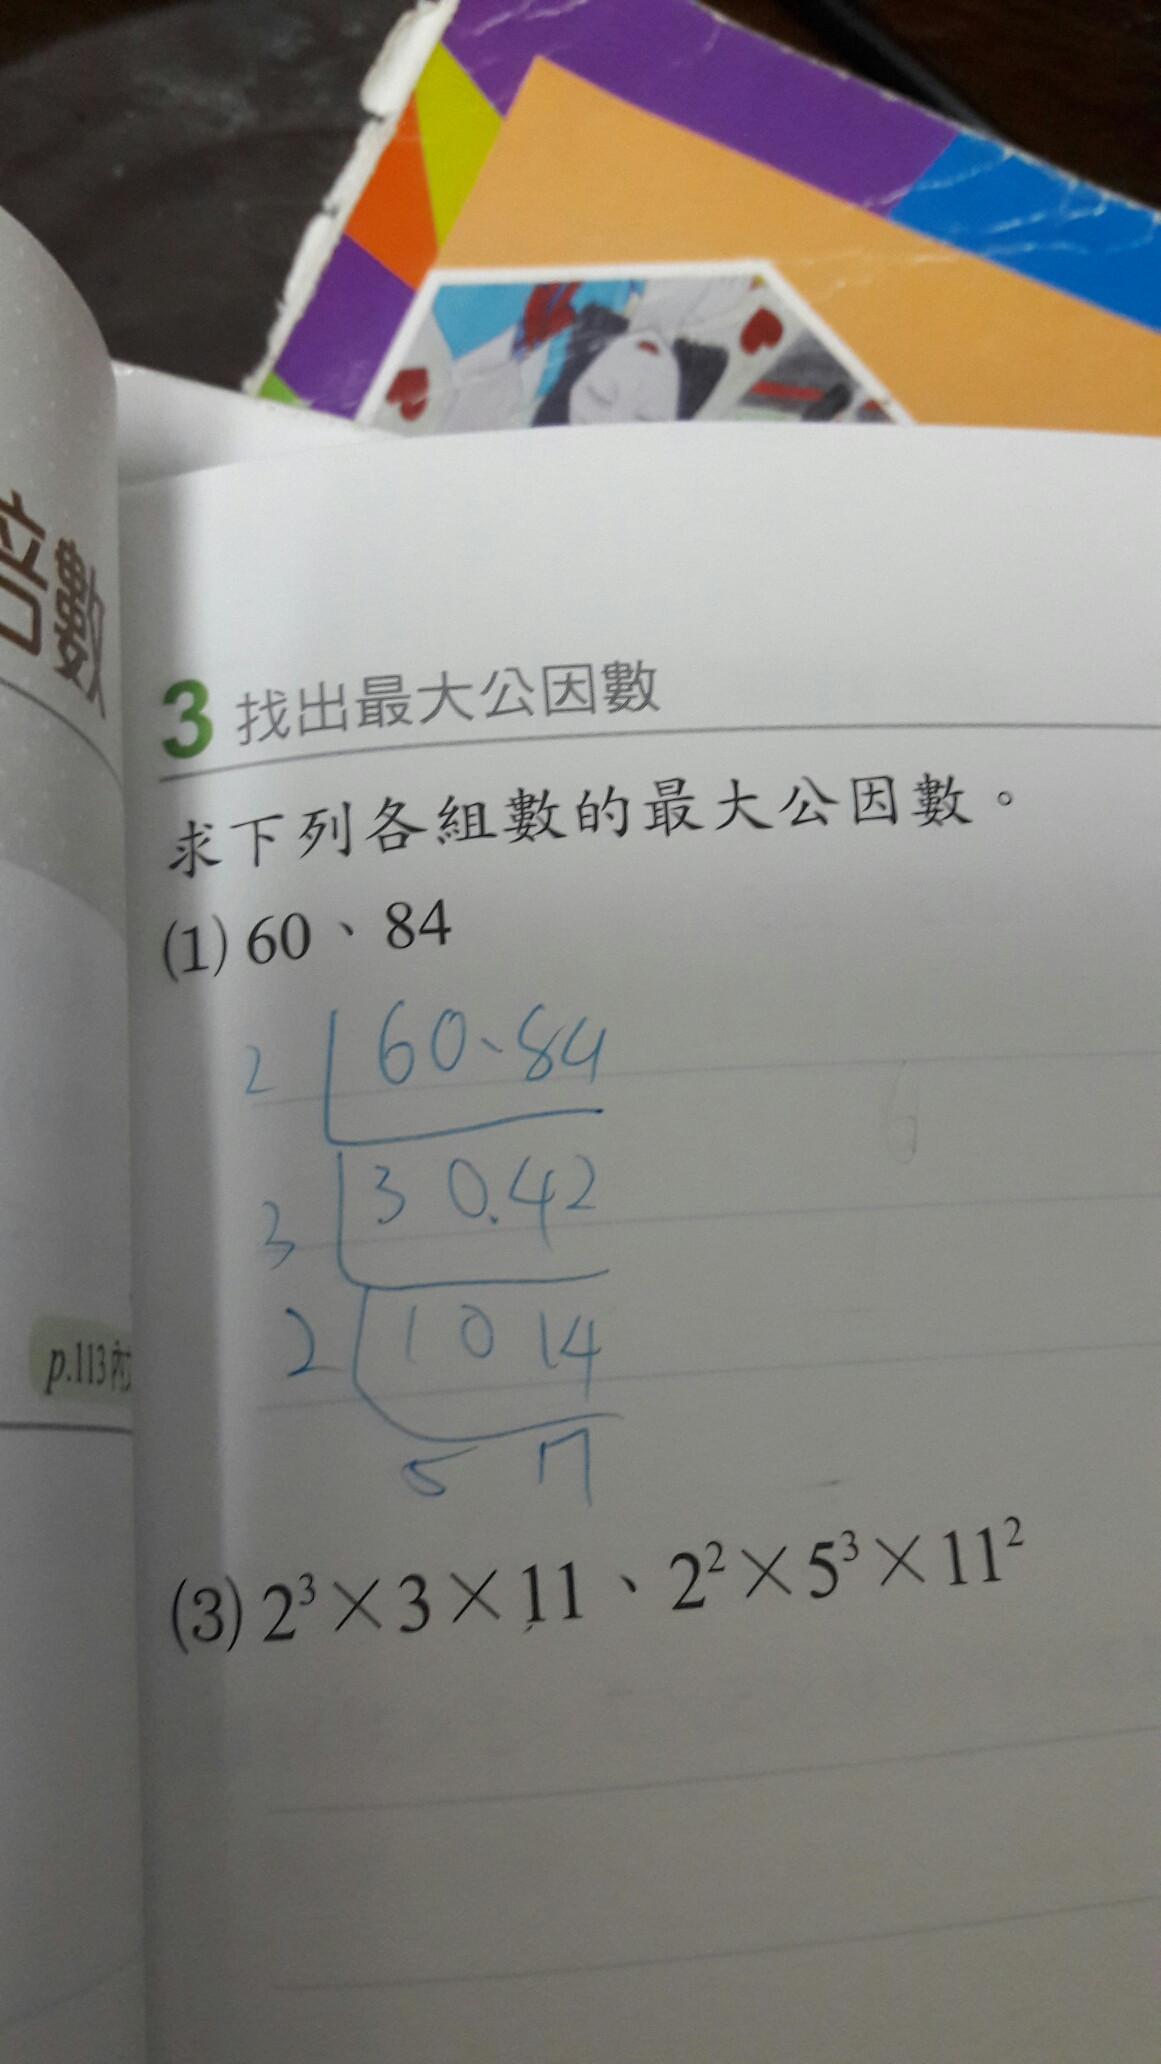 倍數
p.113
3 找出最大公因數
求下列各組數的最大公因數。
(1) 60、84
2 60、84
3 30.42
2 10 14
5 7
(3) 2³×3×11、2²×5³×11²